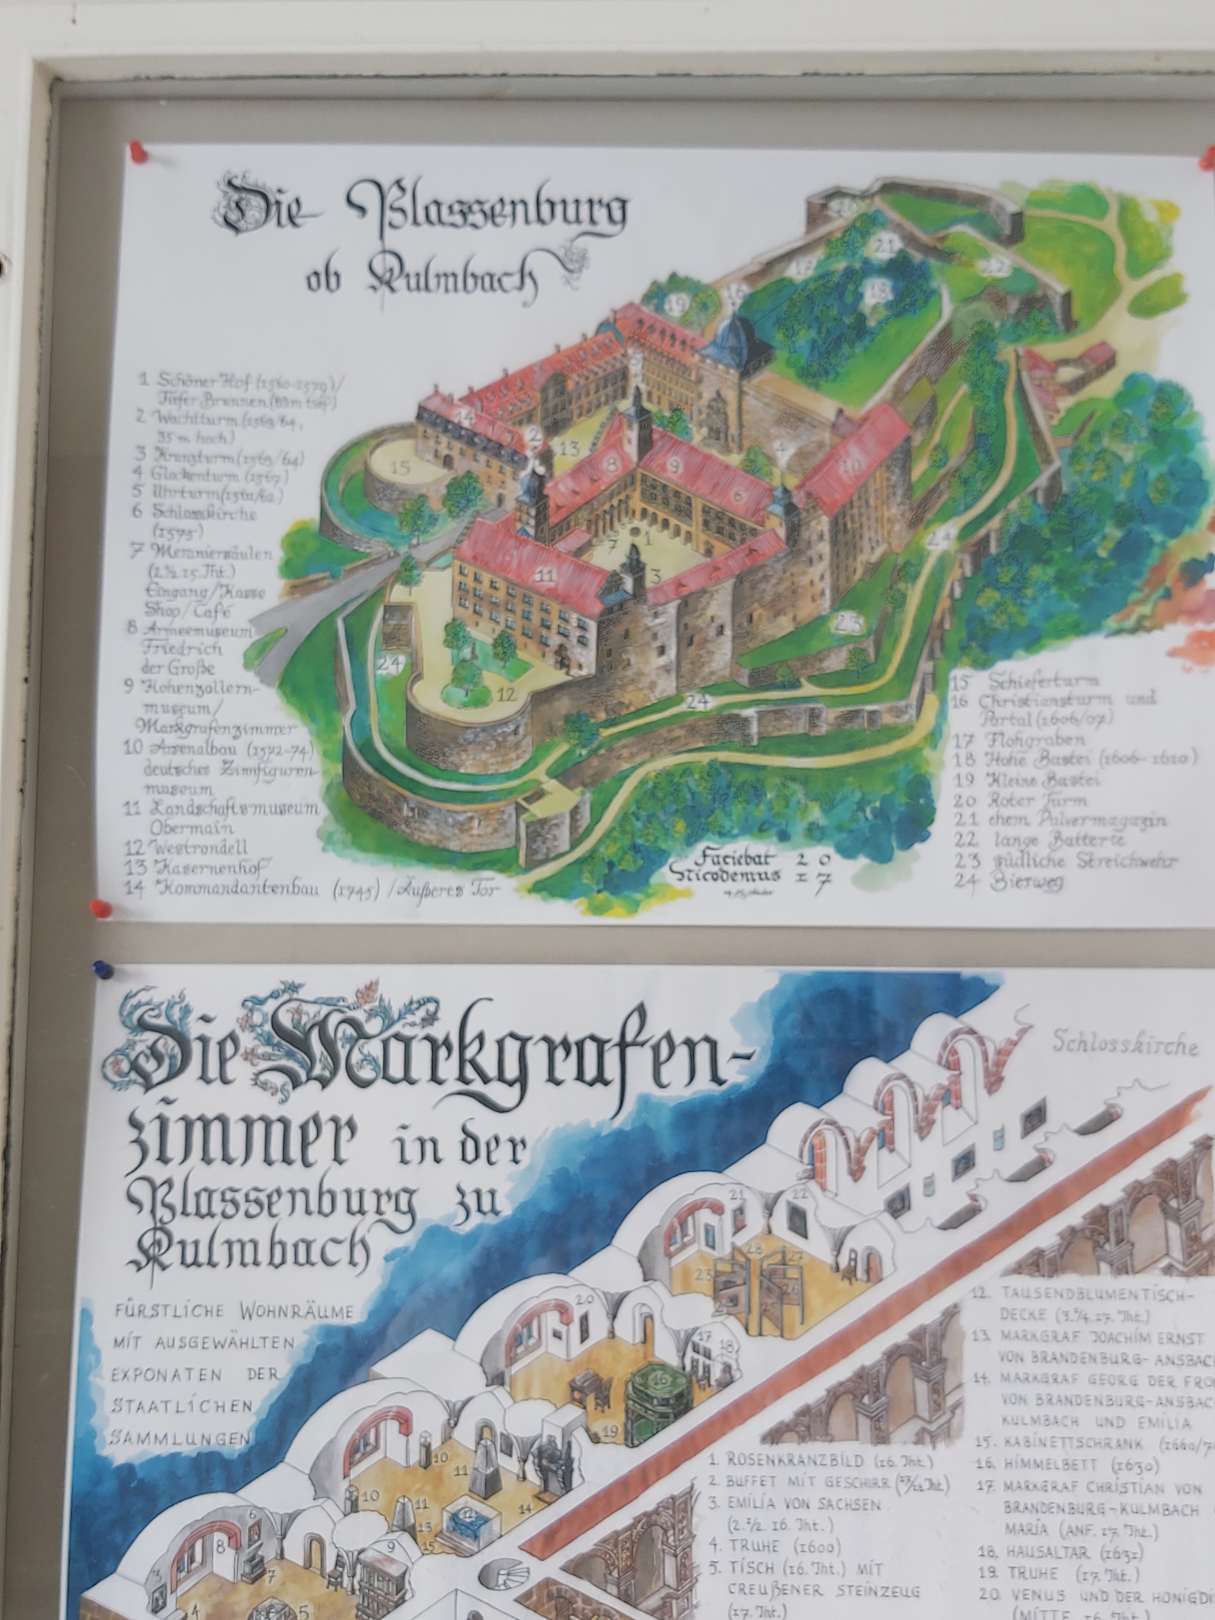 Die Plassenburg
ob Kulmbach
1 Schöner Hof (1560-1579)/
Tiefer Brunnen
2 Wachtturm (1563/64,
35 m hoch)
3 (1563/64)
4 Glockenturm (1567)
5 Uhrturm
6 Schlosskirche
(1575)
7
Eingang/Kasse
Shop/Café
8 Armeemuseum
Friedrich
der Große
9 Hohenzollern-
museum/
Markgrafenzimmer
10 Arsenalbau (1572-74)
deutsches Zinnfiguren-
museum
11 Landschaftsmuseum
Obermain
12 Westrondell
13 Kasernenhof
14 Kommandantenbau (1745) / Äußeres Tor
15 Schieferturm
16 Christiansturm und
Portal (1606/07)
17 Flohgraben
18 Hohe Bastei (1606-1610)
19 Kleine Bastei
20 Roter Turm
21 ehem Pulvermagazin
22 lange Batterie
23 südliche Streichwehr
24 Bierweg
Faciebat 20
Nicodemus 17
Die Markgrafen-
zimmer in der
Plassenburg zu
Kulmbach
FÜRSTLICHE WOHNRÄUME
MIT AUSGEWÄHLTEN
EXPONATEN DER
STAATLICHEN
SAMMLUNGEN
Schlosskirche
1. ROSENKRANZBILD (16. Jht.)
2. BUFFET MIT GESCHIRR
3. EMILIA VON SACHSEN
(2.½. 16. Jht.)
4. TRUHE (1600)
5. TISCH (16. Jht.) MIT
CREUßENER STEINZEUG
(17. Jht.)
12. TAUSENDBLUMENTISCH-
DECKE (3.¾. 17. Jht.)
13. MARKGRAF JOACHIM ERNST
VON BRANDENBURG-ANSBACH
14. MARKGRAF GEORG DER
VON BRANDENBURG-ANSBACH
KULMBACH UND EMILIA
15. KABINETTSCHRANK
16. HIMMELBETT (1630)
17. MARKGRAF CHRISTIAN VON
BRANDENBURG-KULMBACH
MARIA (ANF. 17. Jht.)
18. HAUSALTAR (1632)
19. TRUHE (17. Jht.)
20. VENUS UND DER